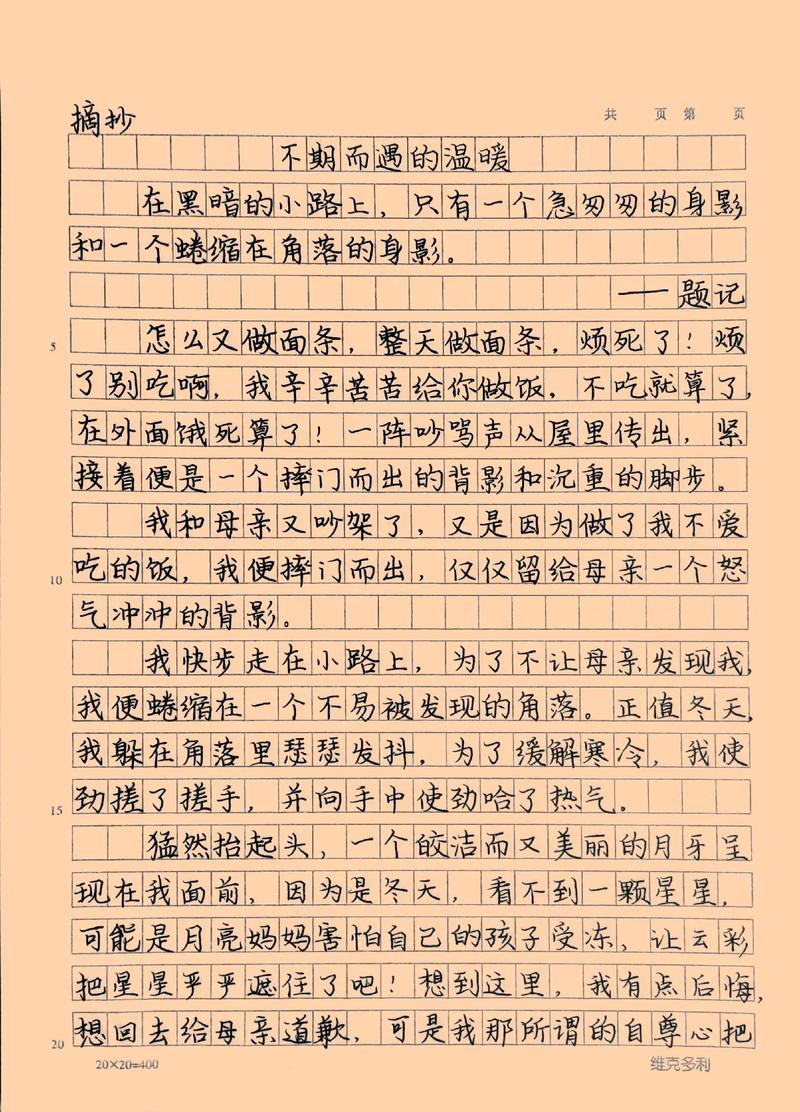 共 页 第 页
摘抄
不期而遇的温暖
在黑暗的小路上，只有一个急匆匆的身影
和一个蜷缩在角落的身影。
——题记
5
怎么又做面条，整天做面条，烦死了！烦
了别吃啊，我辛辛苦苦给你做饭，不吃就算了，
在外面饿死算了！一阵吵骂声从屋里传出，紧
接着便是一个摔门而出的背影和沉重的脚步。
我和母亲又吵架了，又是因为做了我不爱
10
吃的饭，我便摔门而出，仅仅留给母亲一个怒
气冲冲的背影。
我快步走在小路上，为了不让母亲发现我，
我便蜷缩在一个不易被发现的角落。正值冬天，
我躲在角落里瑟瑟发抖，为了缓解寒冷，我使
15
劲搓了搓手，并向手中使劲哈了热气。
猛然抬起头，一个皎洁而又美丽的月牙呈
现在我面前，因为是冬天，看不到一颗星星，
可能是月亮妈妈害怕自己的孩子受冻，让云彩
把星星乎乎遮住了吧！想到这里，我有点后悔，
20
想回去给母亲道歉，可是我那所谓的自尊心把
20×20=400
维克多利